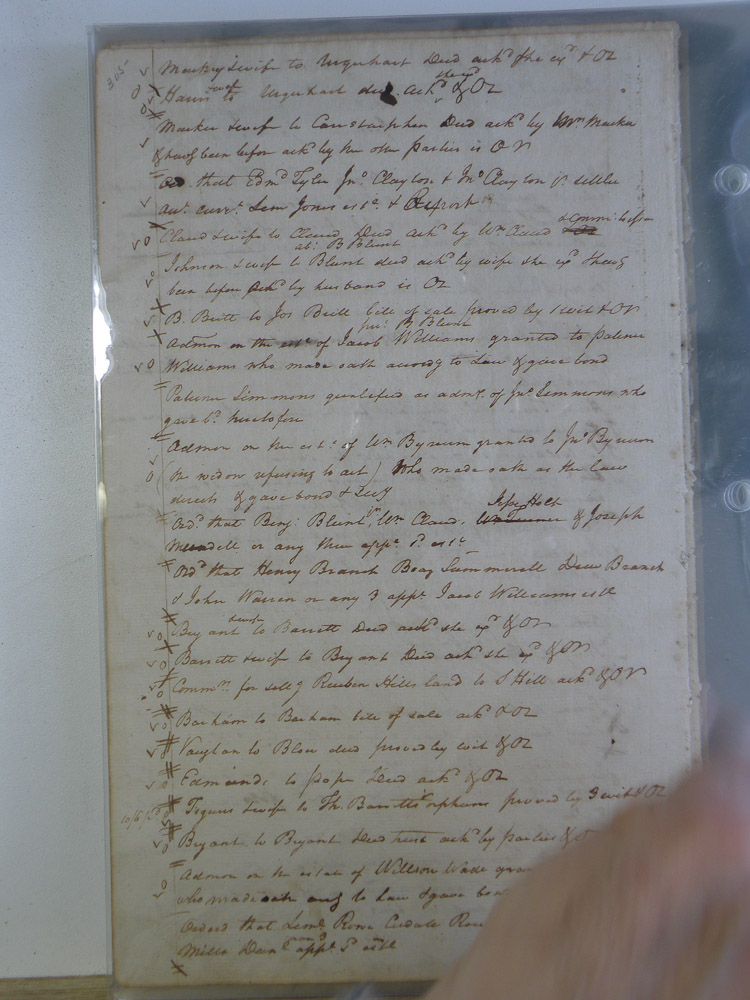 365
Mackey & wife to Urquhart Deed ackd she exd & OR
Harris & wife to Urquhart deed ackd she exd & OR
Mackie & wife to Carstarphen Deed ackd by Wm Mackie
& having been before ackd by the other parties is OR
Ord. that Edmd Tyler Jno. Clayton & Jno Clayton jr. settle
curt. Lem Jones este & Report
Claud & wife to Claud Deed ackd by Wm Claud & Commn to issue OR
Johnson & wife to Blunt deed ackd by wife she exd & havg
been before Ackd by husband is OR
B. Britt to Jos Bell bill of sale proved by 1 wit & OR
at: B Blunt
Admon on the este of Jacob Williams granted to Patience
pr: B Blunt
Williams who made oath accordg to Law & gave bond
Patience Simmons qualified as admx. of Jno. Simmons who
gave bd. heretofore
Admon on the est: of Wm Bynum granted to Jno. Bynum
(the widow refusing to act) Who made oath as the law
directs & gave bond & Secy
Ord. that Benj: Blunt, Wm Claud, Wm Turner Jesse Holt & Joseph
or any three appe. sd. este
Ord. that Henry Branch Boaz Summerell Drew Branch
& John Warren or any 3 appe. Jacob Williams este
Bryant & wife to Barrett Deed ackd she exd & OR
Barrett & wife to Bryant Deed ackd she exd & OR
Commrs for sellg Reuben Hills land to S Hill ackd & OR
Barham to Barham bill of sale ackd & OR
Vaughan to Blow deed proved by wit & OR
Edmunds to Pope Deed ackd & OR
& wife to Th. Barretts orphans proved by 3 wits & OR
Bryant to Bryant Deed trust ackd by parties &
Admon on the estate of Willson Wade gran
who made oath accg to Law & gave bon
Ordered that Leml Rowe
Miller or any 3 appe. sd este